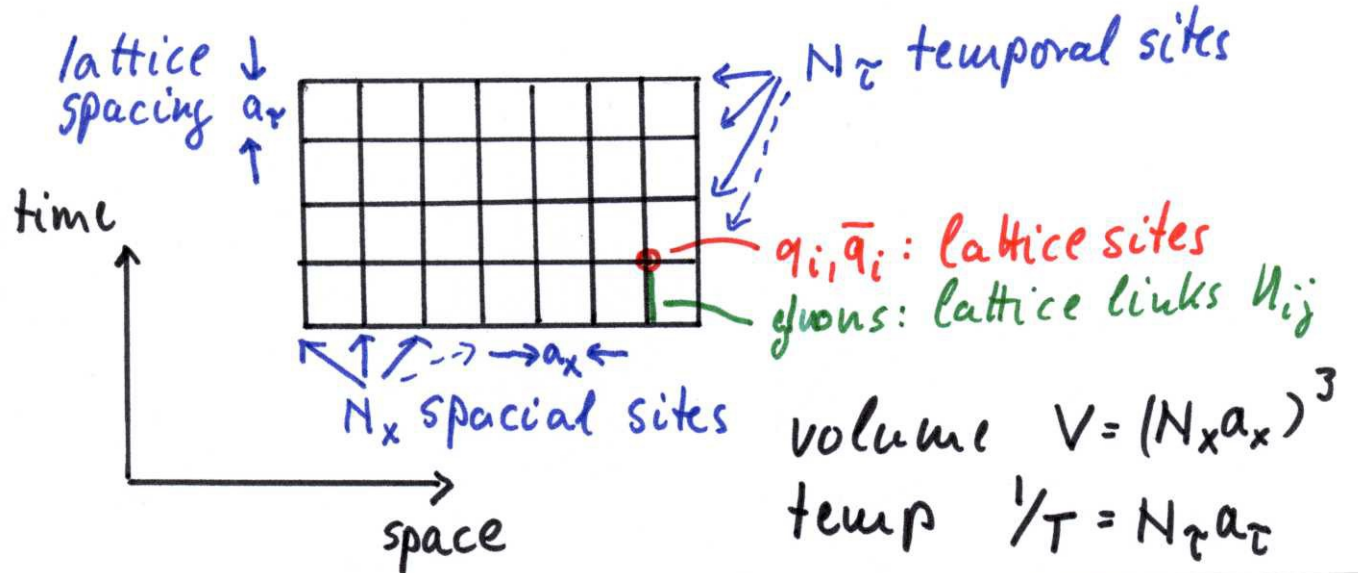 lattice
spacing a_τ
N_τ temporal sites
time
q_i, q̄_i : lattice sites
gluons: lattice links U_ij
a_x
N_x spacial sites
volume V = (N_x a_x)^3
temp 1/T = N_τ a_τ
space